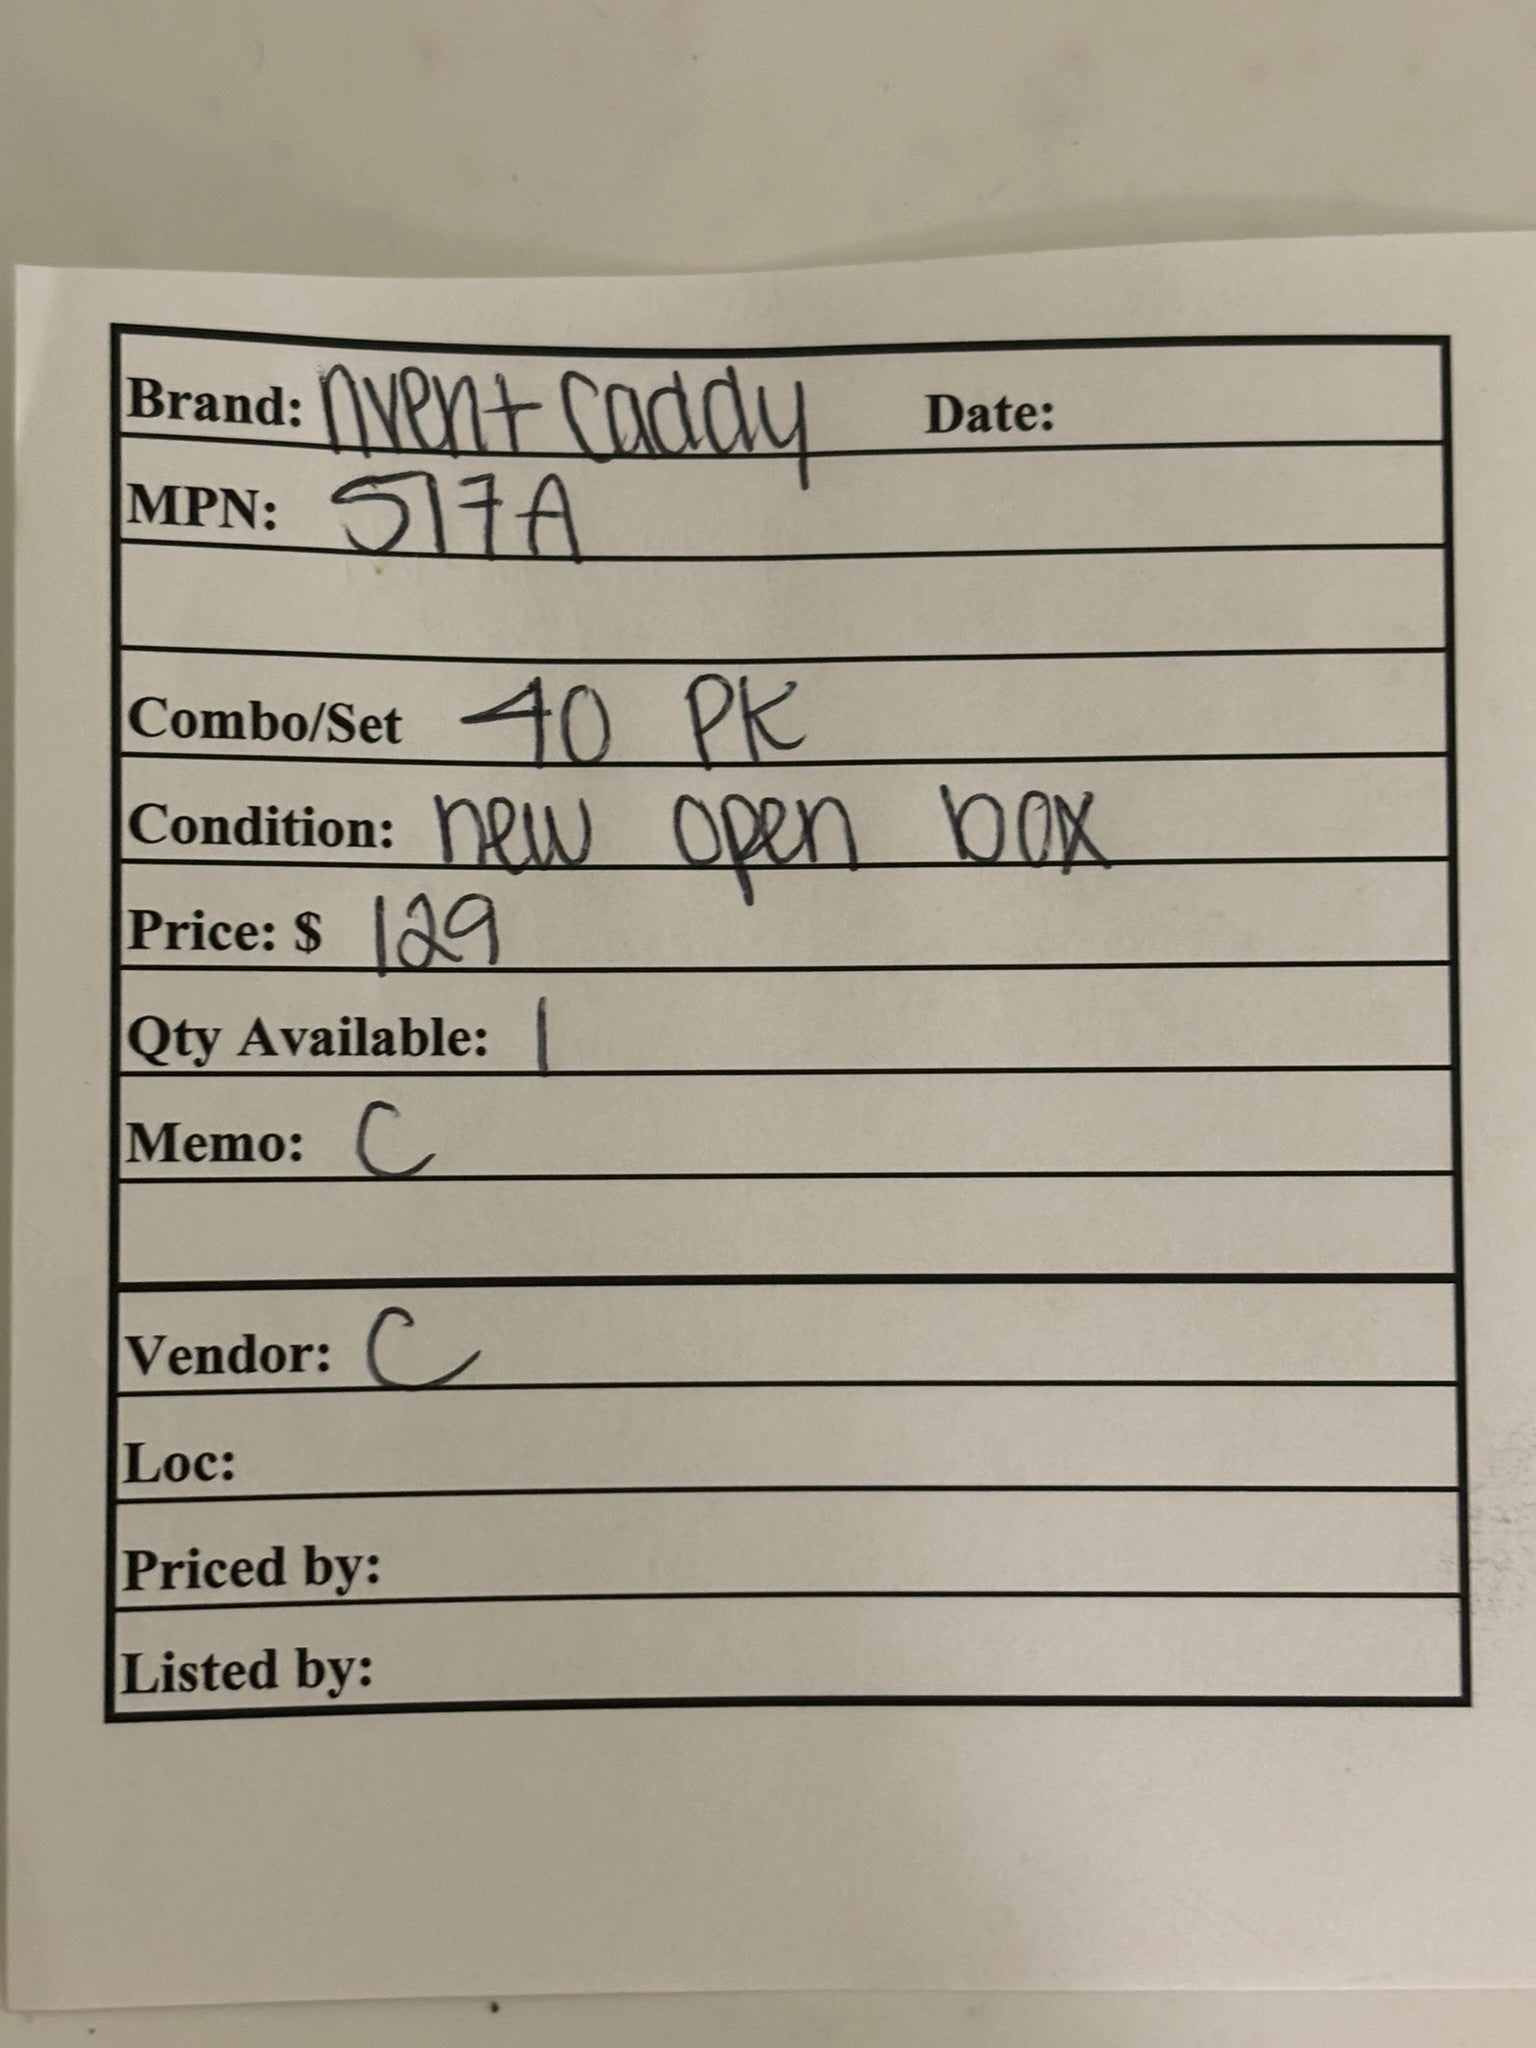 Brand: nvent caddy Date:
MPN: 517A
Combo/Set 40 PK
Condition: new open box
Price: $ 129
Qty Available: 1
Memo: C
Vendor: C
Loc:
Priced by:
Listed by: